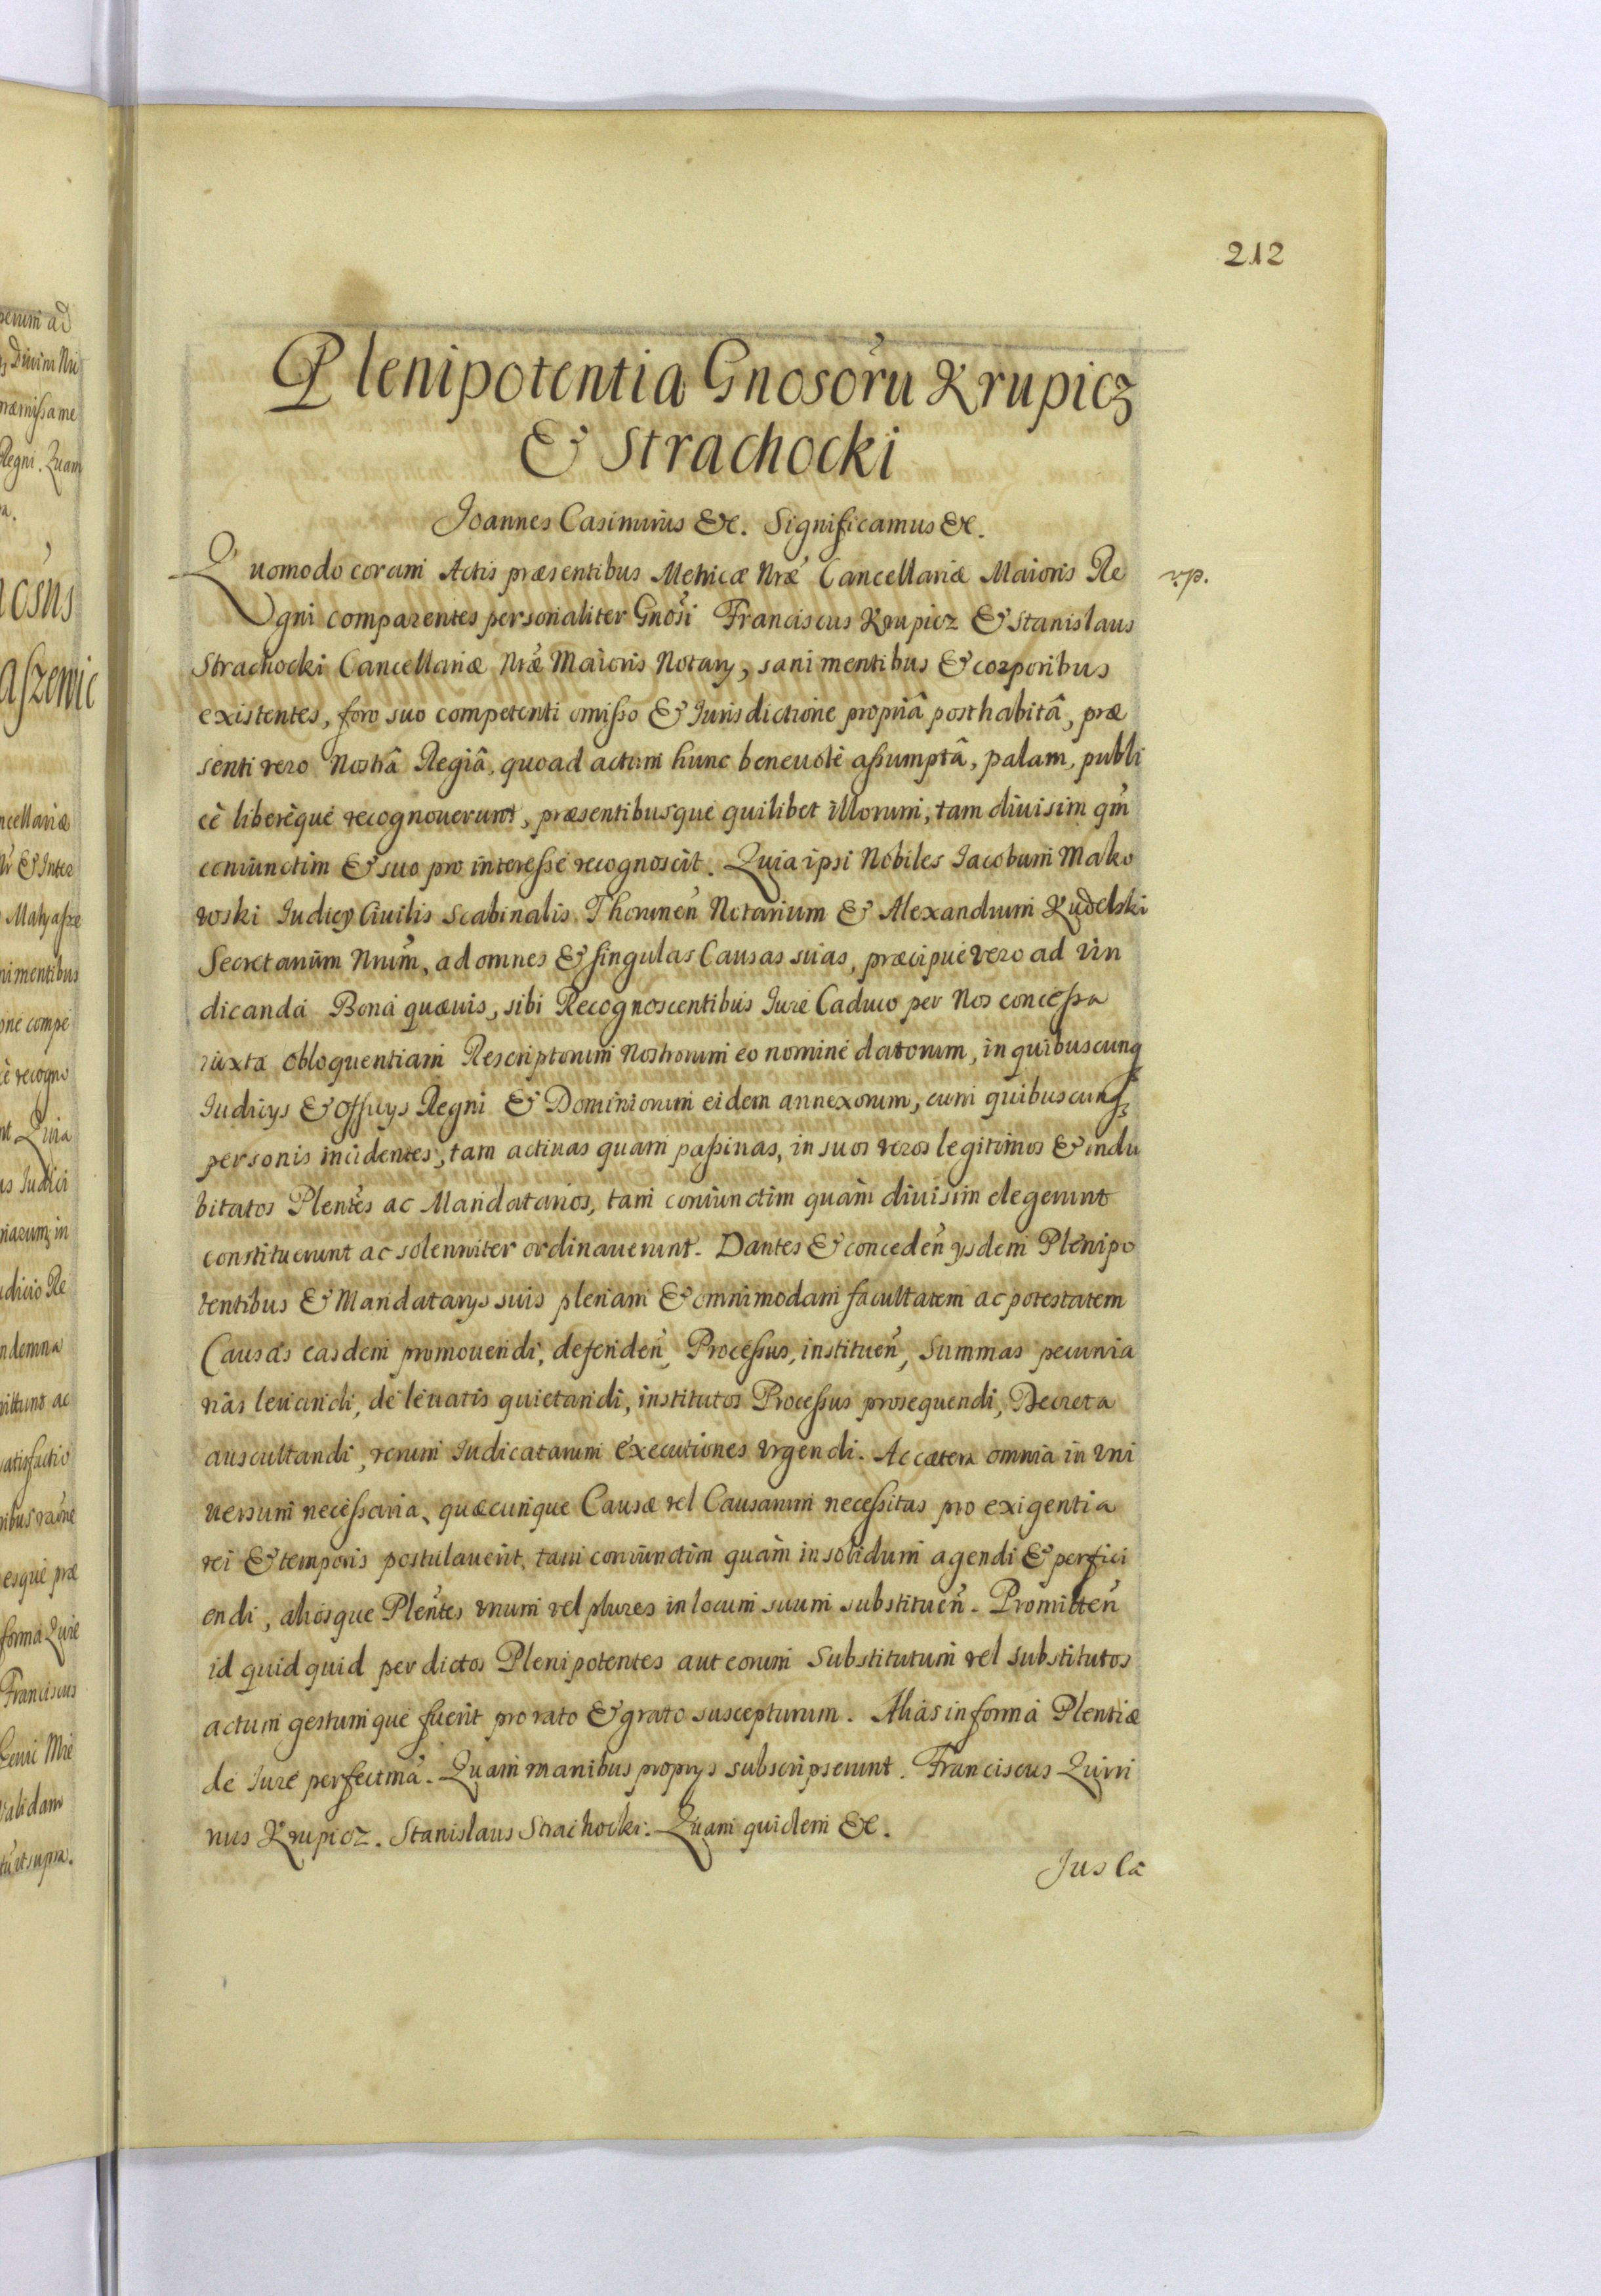 212
Plenipotentia Gnosorũ Krupicz
& Strachocki
Joannes Casimirus &c. Significamus &c.
Quomodo coram Actis præsentibus Metricæ Nræ Cancellariæ Maioris Re
v.p.
gni comparentes personaliter Gnosi Franciscus Krupicz & Stanislaus
Strachocki Cancellariæ Nræ Maioris Notarÿ, sani mentibus & corporibus
existentes, foro suo competenti omisso & Jurisdictione propriâ posthabitâ, præ
senti vero Nostrâ Regiâ, quoad actum hunc beneuolè assumptâ, palam, publi
cè liberèque recognouerunt, præsentibusque quilibet illorum, tam diuisim qm̃
coniunctim & suo pro interesse recognoscit. Quia ipsi Nobiles Jacobum Mako
woski Judicÿ Ciuilis Scabinalis Thorunen̄ Notarium & Alexandrum Kudelski
Secretarium Nrum, ad omnes & singulas Causas suas, præcipuè vero ad vin
dicanda Bona quæuis, sibi Recognoscentibus Jure Caduco per Nos concessa
iuxta obloquentiam Rescriptorum Nostrorum eo nomine datorum, in quibuscunq
Judicÿs & Officÿs Regni & Dominiorum eidem annexorum, cum quibuscunq
personis incidentes, tam actiuas quam passiuas, in suos veros legitimos & indu
bitatos Plentes ac Mandatarios, tam coniunctim quàm diuisim elegerunt
constituerunt ac solenniter ordinauerunt. Dantes & conceden̄ ÿsdem Plenipo
tentibus & Mandatarÿs suis plenam & omnimodam facultatem ac potestatem
Causas easdem promouendi, defenden̄, Processus, instituen̄, Summas pecunia
rias leuandi, de leuatis quietandi, institutos Processus prosequendi, Decreta
auscultandi, rerum Judicatarum executiones vrgendi. Ac cætera omnia in vni
uersum necessaria, quæcunque Causæ vel Causarum necessitas pro exigentia
rei & temporis postulauerit, tam coniunctim quàm in solidum agendi & perfici
endi, aliosque Plentes vnum vel plures in locum suum substituen̄. Promitten̄
id quidquid per dictos Plenipotentes aut eorum Substitutum vel substitutos
actum gestumque fuerit pro rato & grato suscepturum. Alias in forma Plentiæ
de Jure perfectma. Quam manibus proprÿs subscripserunt. Franciscus Quiri
nus Krupicz. Stanislaus Strachocki. Quam quidem &c.
Jus Ca